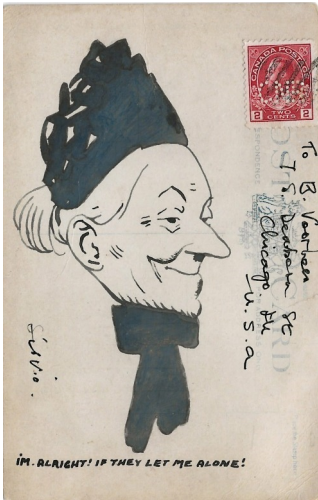 CANADA POSTAGE
2 2
TWO
CENTS
To B. Voorhees
St
Chicago. Ill
U.S.a
Silvio.
I'M. ALRIGHT! IF THEY LET ME ALONE!